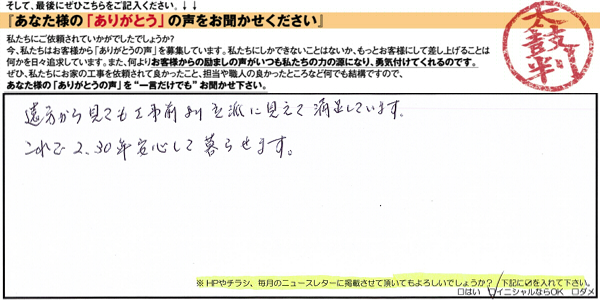 そして、最後にぜひこちらをご記入ください。↓↓
『あなた様の「ありがとう」の声をお聞かせください』
私たちにご依頼されていかがでしたでしょうか?
今、私たちはお客様から「ありがとうの声」を募集しています。私たちにしかできないことはないか、もっとお客様にして差し上げることは
何かを日々追求しています。また、何よりお客様からの励ましの声がいつも私たちの力の源になり、勇気付けてくれるのです。
ぜひ、私たちにお家の工事を依頼されて良かったこと、担当や職人の良かったところなど何でも結構ですので、
あなた様の「ありがとうの声」を“一言だけでも”お聞かせ下さい。
太鼓判
遠方から見ても工事前より立派に見えて満足しています。
これで2、30年安心して暮らせます。
※HPやチラシ、毎月のニュースレターに掲載させて頂いてもよろしいでしょうか? 下記に☑を入れて下さい。
□はい ☑イニシャルならOK □ダメ